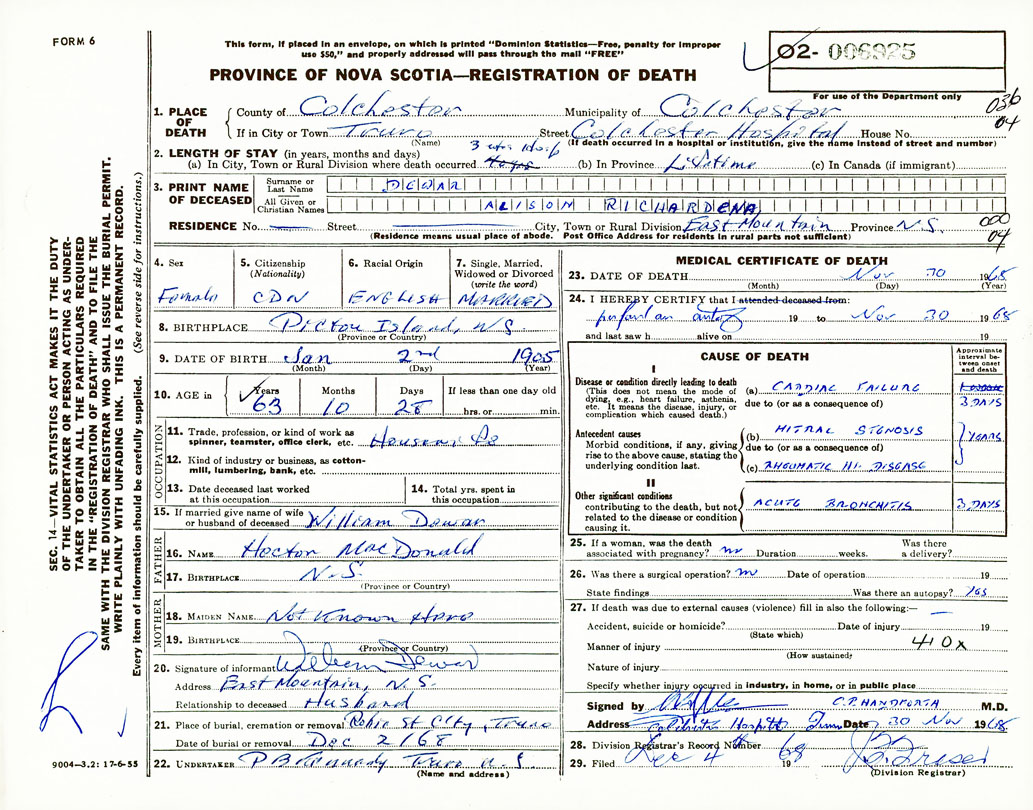 FORM 6
This form, if placed in an envelope, on which is printed "Dominion Statistics—Free, penalty for improper
use $50," and properly addressed will pass through the mail "FREE"
PROVINCE OF NOVA SCOTIA—REGISTRATION OF DEATH
02- 006925
For use of the Department only
036
04
SEC. 14—VITAL STATISTICS ACT MAKES IT THE DUTY
OF THE UNDERTAKER OR PERSON ACTING AS UNDER-
TAKER TO OBTAIN ALL THE PARTICULARS REQUIRED
IN THE "REGISTRATION OF DEATH" AND TO FILE THE
SAME WITH THE DIVISION REGISTRAR WHO SHALL ISSUE THE BURIAL PERMIT.
WRITE PLAINLY WITH UNFADING INK. THIS IS A PERMANENT RECORD.
Every item of information should be carefully supplied. (See reverse side for instructions.)
1. PLACE OF DEATH
County of Colchester Municipality of Colchester
If in City or Town Truro Street Colchester Hospital House No.
(Name) (If death occurred in a hospital or institution, give the name instead of street and number)
2. LENGTH OF STAY (in years, months and days)
3 wks Hosp
(a) In City, Town or Rural Division where death occurred (b) In Province Lifetime (c) In Canada (if immigrant)
3. PRINT NAME OF DECEASED
Surname or Last Name DEWAR
All Given or Christian Names ALISON RICHARDENA
RESIDENCE No. Street City, Town or Rural Division East Mountain Province N.S.
(Residence means usual place of abode. Post Office Address for residents in rural parts not sufficient)
000
04
4. Sex
Female
5. Citizenship
(Nationality)
CDN
6. Racial Origin
ENGLISH
7. Single, Married,
Widowed or Divorced
(write the word)
MARRIED
8. BIRTHPLACE Pictou Island, N.S.
(Province or Country)
9. DATE OF BIRTH Jan 2nd 1905
(Month) (Day) (Year)
10. AGE in
Years Months Days If less than one day old
63 10 28 hrs. or min.
OCCUPATION
11. Trade, profession, or kind of work as
spinner, teamster, office clerk, etc. Housewife
12. Kind of industry or business, as cotton-
mill, lumbering, bank, etc.
13. Date deceased last worked
at this occupation
14. Total yrs. spent in
this occupation
15. If married give name of wife
or husband of deceased William Dewar
FATHER
16. NAME Hector MacDonald
17. BIRTHPLACE N.S.
(Province or Country)
MOTHER
18. MAIDEN NAME Not Known Here
19. BIRTHPLACE
(Province or Country)
20. Signature of informant William Dewar
Address East Mountain, N.S.
Relationship to deceased Husband
21. Place of burial, cremation or removal Robie St Cty, Truro
Date of burial or removal Dec 2/68
22. UNDERTAKER Truro N.S.
(Name and address)
9004—3.2: 17-6-55
MEDICAL CERTIFICATE OF DEATH
23. DATE OF DEATH Nov 30 1968
(Month) (Day) (Year)
24. I HEREBY CERTIFY that I attended deceased from:
19 to Nov 30 1968
and last saw h alive on 19
CAUSE OF DEATH
Approximate
interval be-
tween onset
and death
I
Disease or condition directly leading to death
(This does not mean the mode of
dying, e.g., heart failure, asthenia,
etc. It means the disease, injury, or
complication which caused death.)
(a) CARDIAC FAILURE
due to (or as a consequence of)
3 DAYS
Antecedent causes
Morbid conditions, if any, giving
rise to the above cause, stating the
underlying condition last.
(b) MITRAL STENOSIS
due to (or as a consequence of)
(c) RHEUMATIC HT. DISEASE
YEARS
II
Other significant conditions
contributing to the death, but not
related to the disease or condition
causing it.
ACUTE BRONCHITIS
3 DAYS
25. If a woman, was the death Was there
associated with pregnancy? no Duration weeks. a delivery?
26. Was there a surgical operation? no Date of operation 19
State findings Was there an autopsy? Yes
27. If death was due to external causes (violence) fill in also the following:—
Accident, suicide or homicide? Date of injury 19
(State which)
Manner of injury 410X
(How sustained)
Nature of injury
Specify whether injury occurred in industry, in home, or in public place
Signed by C.P. HANDFORTH M.D.
Address Colchester Hospital Truro Date 30 Nov 1968
28. Division Registrar's Record Number
29. Filed Dec 4 1968
(Division Registrar)